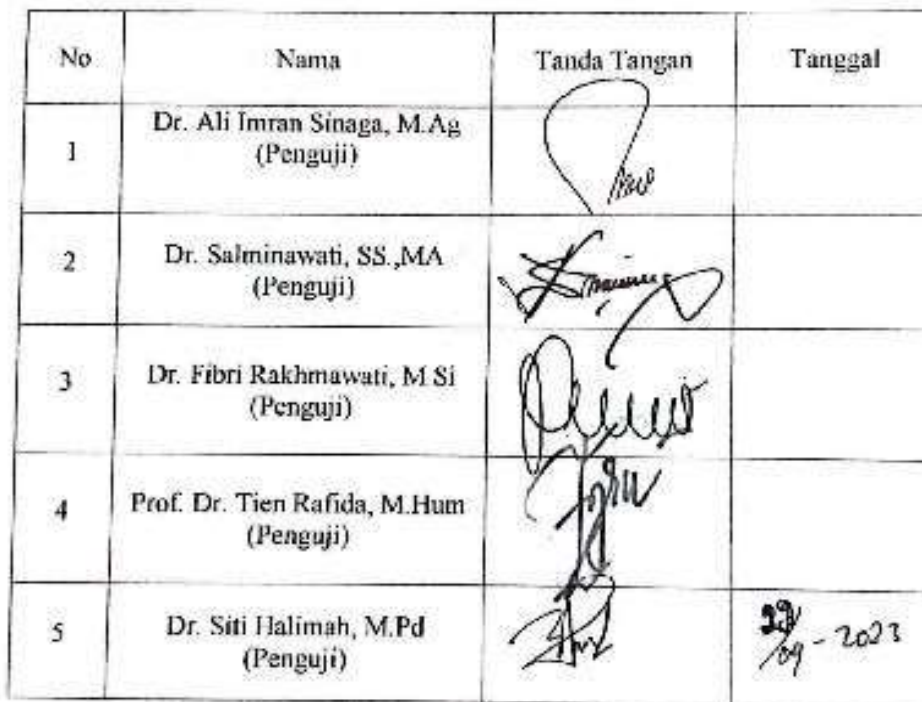 No Nama Tanda Tangan Tanggal
1 Dr. Ali Imran Sinaga, M.Ag
(Penguji)
2 Dr. Salminawati, SS.,MA
(Penguji)
3 Dr. Fibri Rakhmawati, M.Si
(Penguji)
4 Prof. Dr. Tien Rafida, M.Hum
(Penguji)
5 Dr. Siti Halimah, M.Pd
(Penguji)
/09 - 2023